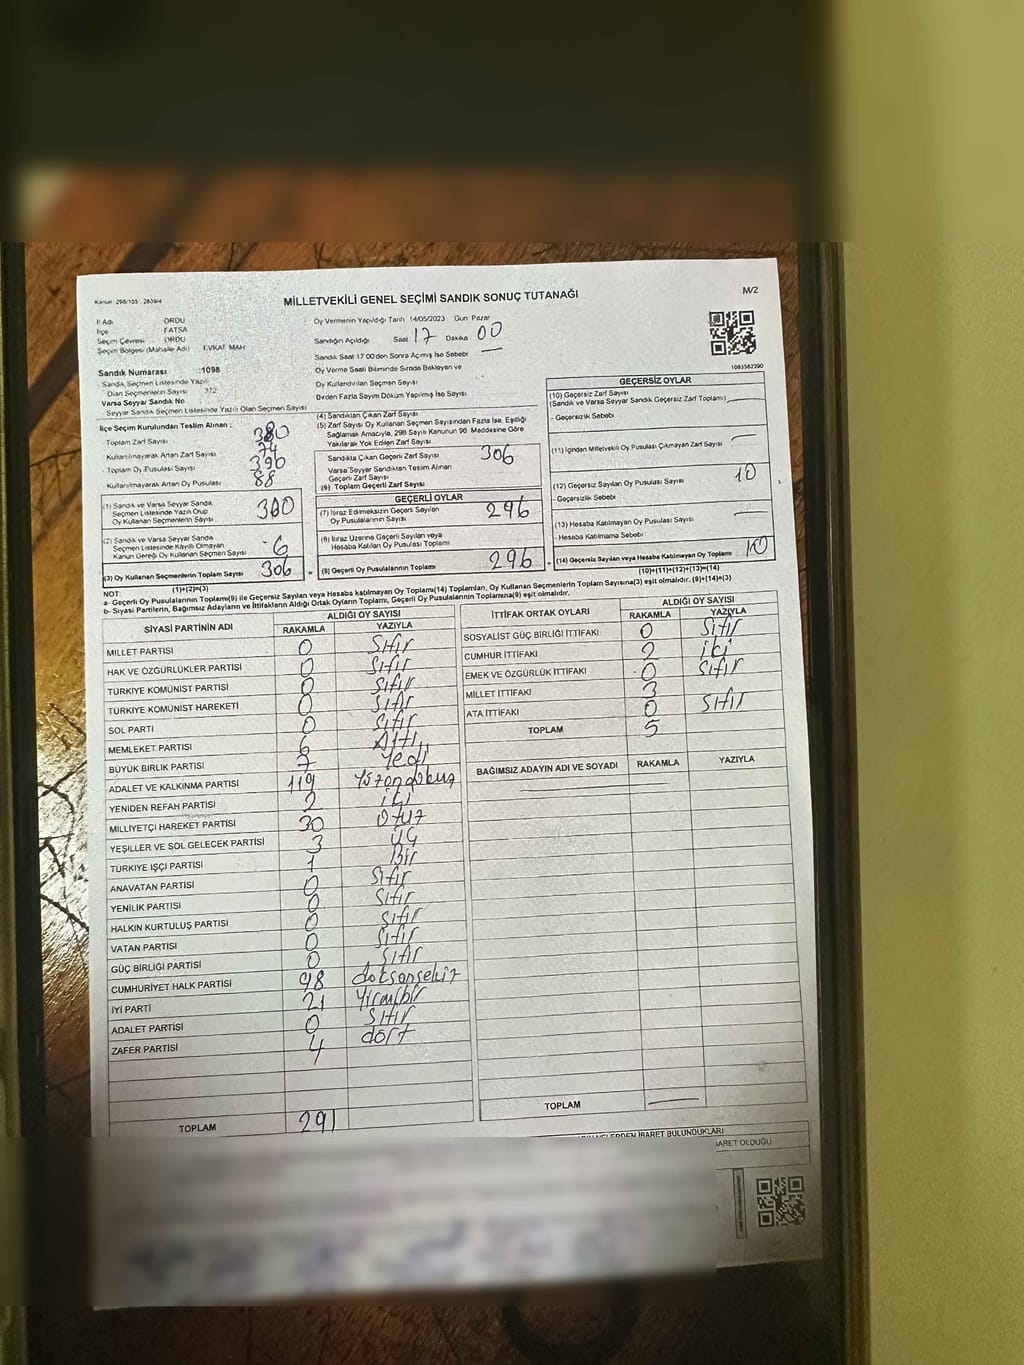 Kanun 298/105 : 283/4
MİLLETVEKİLİ GENEL SEÇİMİ SANDIK SONUÇ TUTANAĞI
M/2
İl Adı ORDU
İlçe FATSA
Seçim Çevresi ORDU
Seçim Bölgesi (Mahalle Adı) EVKAF MAH
Sandık Numarası :1098
- Sandık Seçmen Listesinde Yazılı
Olan Seçmenlerin Sayısı 372
Varsa Seyyar Sandık No
- Seyyar Sandık Seçmen Listesinde Yazılı Olan Seçmen Sayısı
Oy Vermenin Yapıldığı Tarih 14/05/2023 Gün Pazar
Sandığın Açıldığı Saat 17 Dakika 00
Sandık Saat 17 00'den Sonra Açılmış İse Sebebi
Oy Verme Saati Bitiminde Sırada Bekleyen ve
Oy Kullandırılan Seçmen Sayısı
Birden Fazla Sayım Döküm Yapılmış İse Sayısı
1083582390
İlçe Seçim Kurulundan Teslim Alınan :
Toplam Zarf Sayısı 380
Kullanılmayarak Artan Zarf Sayısı 74
- Toplam Oy Pusulası Sayısı 390
- Kullanılmayarak Artan Oy Pusulası 88
(1) Sandık ve Varsa Seyyar Sandık
Seçmen Listesinde Yazılı Olup
Oy Kullanan Seçmenlerin Sayısı 300
(2) Sandık ve Varsa Seyyar Sandık
Seçmen Listesinde Kayıtlı Olmayan
Kanun Gereği Oy Kullanan Seçmen Sayısı 6
(3) Oy Kullanan Seçmenlerin Toplam Sayısı 306
(1)+(2)=(3)
(4) Sandıktan Çıkan Zarf Sayısı
(5) Zarf Sayısı Oy Kullanan Seçmen Sayısından Fazla İse, Eşitliği
Sağlamak Amacıyla, 298 Sayılı Kanunun 98. Maddesine Göre
Yakılarak Yok Edilen Zarf Sayısı
Sandıkta Çıkan Geçerli Zarf Sayısı 306
Varsa Seyyar Sandıktan Teslim Alınan
Geçerli Zarf Sayısı
(6) Toplam Geçerli Zarf Sayısı
GEÇERLİ OYLAR
(7) İtiraz Edilmeksizin Geçerli Sayılan
Oy Pusulalarının Sayısı 296
(8) İtiraz Üzerine Geçerli Sayılan veya
Hesaba Katılan Oy Pusulası Toplamı
(9) Geçerli Oy Pusulalarının Toplamı 296
GEÇERSİZ OYLAR
(10) Geçersiz Zarf Sayısı
(Sandık ve Varsa Seyyar Sandık Geçersiz Zarf Toplamı)
- Geçersizlik Sebebi
(11) İçinden Milletvekili Oy Pusulası Çıkmayan Zarf Sayısı
(12) Geçersiz Sayılan Oy Pusulası Sayısı 10
- Geçersizlik Sebebi
(13) Hesaba Katılmayan Oy Pusulası Sayısı
- Hesaba Katılmama Sebebi
(14) Geçersiz Sayılan veya Hesaba Katılmayan Oy Toplamı 10
(10)+(11)+(12)+(13)=(14)
NOT:
a- Geçerli Oy Pusulalarının Toplamı(9) ile Geçersiz Sayılan veya Hesaba katılmayan Oy Toplamı(14) Toplamları, Oy Kullanan Seçmenlerin Toplam Sayısına(3) eşit olmalıdır. (9)+(14)=(3)
b- Siyasi Partilerin, Bağımsız Adayların ve İttifakların Aldığı Ortak Oyların Toplamı, Geçerli Oy Pusulalarının Toplamına(9) eşit olmalıdır.
SİYASİ PARTİNİN ADI
ALDIĞI OY SAYISI
RAKAMLA YAZIYLA
MİLLET PARTİSİ 0 Sıfır
HAK VE ÖZGÜRLÜKLER PARTİSİ 0 Sıfır
TÜRKİYE KOMÜNİST PARTİSİ 0 Sıfır
TÜRKİYE KOMÜNİST HAREKETİ 0 Sıfır
SOL PARTİ 0 Sıfır
MEMLEKET PARTİSİ 6 Altı
BÜYÜK BİRLİK PARTİSİ 7 Yedi
ADALET VE KALKINMA PARTİSİ 119 Yüzondokuz
YENİDEN REFAH PARTİSİ 2 iki
MİLLİYETÇİ HAREKET PARTİSİ 30 Otuz
YEŞİLLER VE SOL GELECEK PARTİSİ 3 Üç
TÜRKİYE İŞÇİ PARTİSİ 1 Bir
ANAVATAN PARTİSİ 0 Sıfır
YENİLİK PARTİSİ 0 Sıfır
HALKIN KURTULUŞ PARTİSİ 0 Sıfır
VATAN PARTİSİ 0 Sıfır
GÜÇ BİRLİĞİ PARTİSİ 0 Sıfır
CUMHURİYET HALK PARTİSİ 98 doksansekiz
İYİ PARTİ 21 Yirmibir
ADALET PARTİSİ 0 Sıfır
ZAFER PARTİSİ 4 dört
TOPLAM 291
İTTİFAK ORTAK OYLARI
ALDIĞI OY SAYISI
RAKAMLA YAZIYLA
SOSYALİST GÜÇ BİRLİĞİ İTTİFAKI 0 Sıfır
CUMHUR İTTİFAKI 2 iki
EMEK VE ÖZGÜRLÜK İTTİFAKI 0 Sıfır
MİLLET İTTİFAKI 3
ATA İTTİFAKI 0 Sıfır
TOPLAM 5
BAĞIMSIZ ADAYIN ADI VE SOYADI RAKAMLA YAZIYLA
TOPLAM
İBARET BULUNDUKLARI
İBARET OLDUĞU